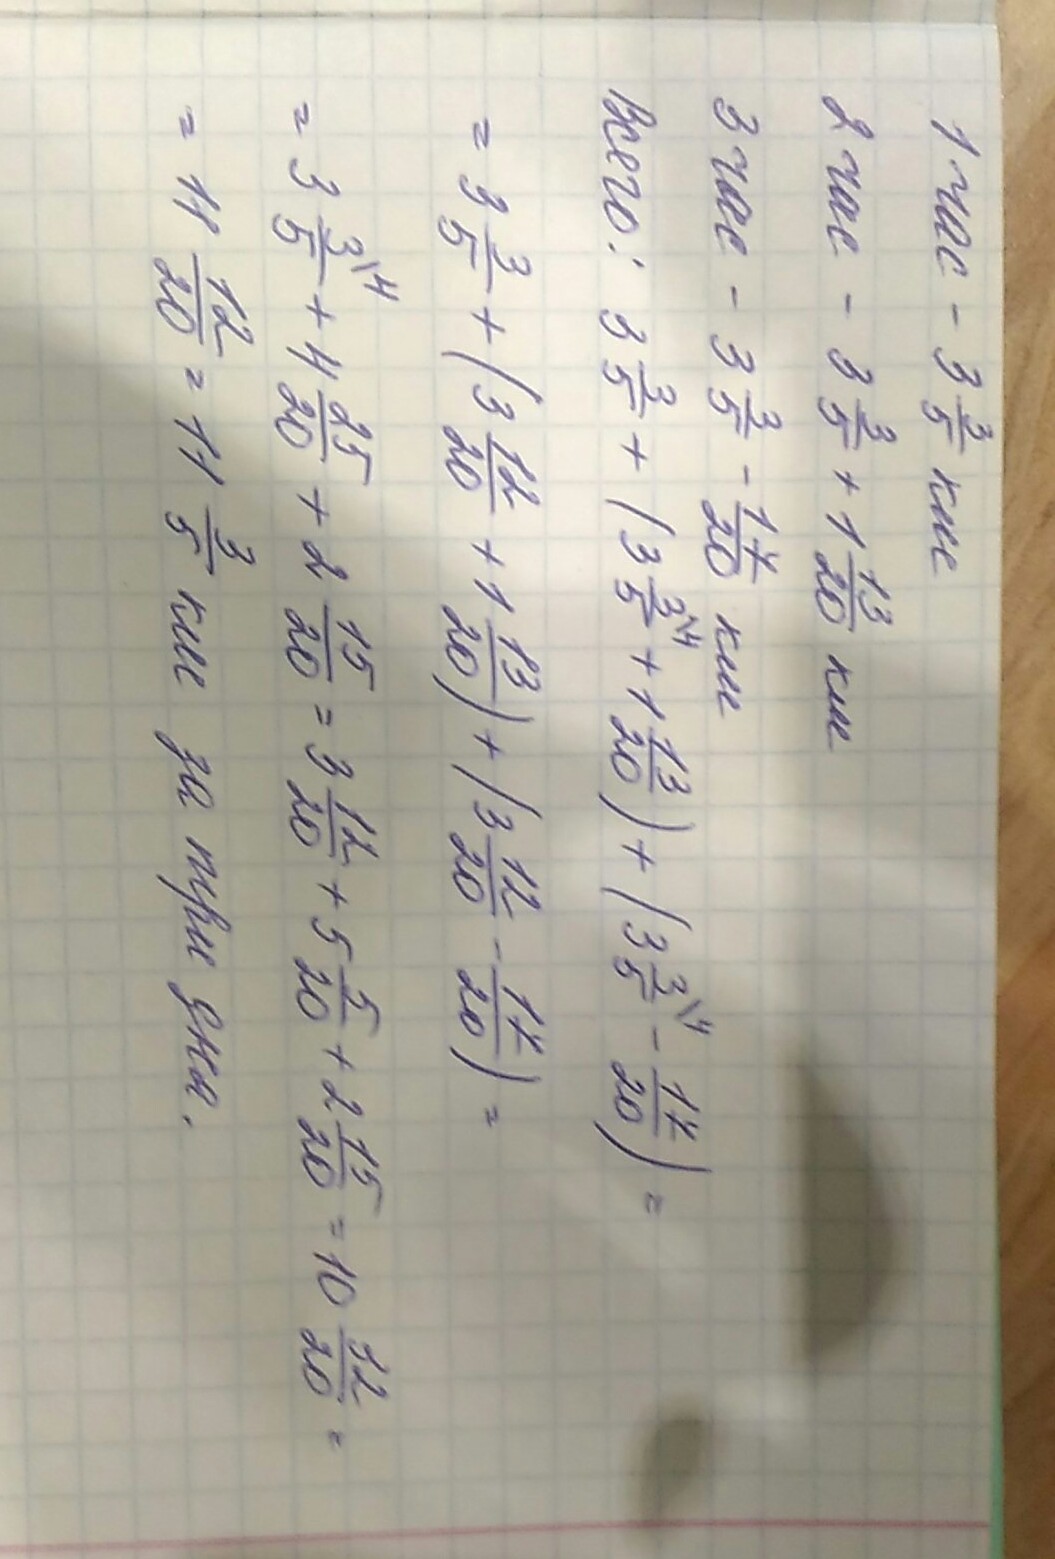 1 час - 3 3/5 км
2 час - 3 3/5 + 1 13/20 км
3 час - 3 3/5 - 17/20 км
Всего: 3 3/5 + (3 3\4/5 + 1 13/20) + (3 3\4/5 - 17/20) =
= 3 3/5 + (3 12/20 + 1 13/20) + (3 12/20 - 17/20) =
= 3 3\4/5 + 4 25/20 + 2 15/20 = 3 12/20 + 5 5/20 + 2 15/20 = 10 32/20 =
= 11 12/20 = 11 3/5 км за три дня.